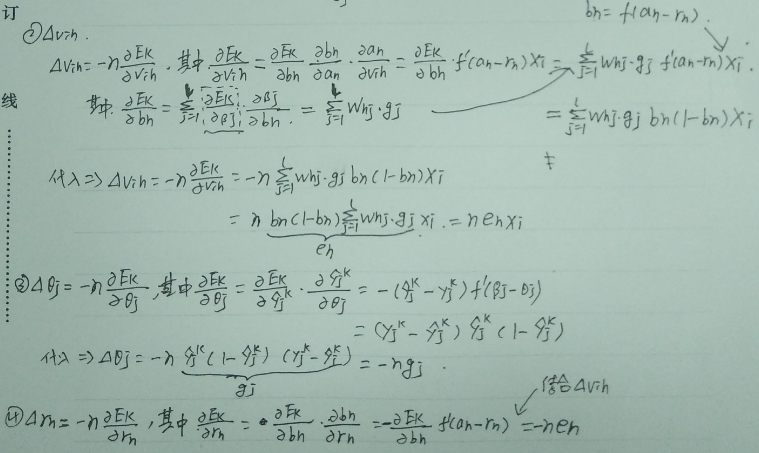 订
bh = f(αh-rh).
②Δvih.
Δvih = -η ∂Ek/∂vih . 其中 ∂Ek/∂vih = ∂Ek/∂bh · ∂bh/∂αh · ∂αh/∂vih = ∂Ek/∂bh · f'(αh-rh)Xi = Σ_{j=1}^{l} Whj·gj f'(αh-rh)Xi.
线
其中 ∂Ek/∂bh = Σ_{j=1}^{l} ∂Ek/∂βj · ∂βj/∂bh. = Σ_{j=1}^{l} Whj·gj
= Σ_{j=1}^{l} Whj·gj bh(1-bh)Xi
代入 => Δvih = -η ∂Ek/∂vih = -η Σ_{j=1}^{l} Whj·gj bh(1-bh)Xi
= η bh(1-bh) Σ_{j=1}^{l} Whj·gj Xi. = η eh Xi
eh
③Δθj = -η ∂Ek/∂θj, 其中 ∂Ek/∂θj = ∂Ek/∂ŷj^k · ∂ŷj^k/∂θj = -(ŷj^k - yj^k) f'(βj-θj)
= (yj^k - ŷj^k) ŷj^k (1-ŷj^k)
代入 => Δθj = -η ŷj^k (1-ŷj^k) (yj^k - ŷj^k) = -ηgj .
gj
结合Δvih
④Δrh = -η ∂Ek/∂rh, 其中 ∂Ek/∂rh = ∂Ek/∂bh · ∂bh/∂rh = -∂Ek/∂bh f'(αh-rh) = -ηeh